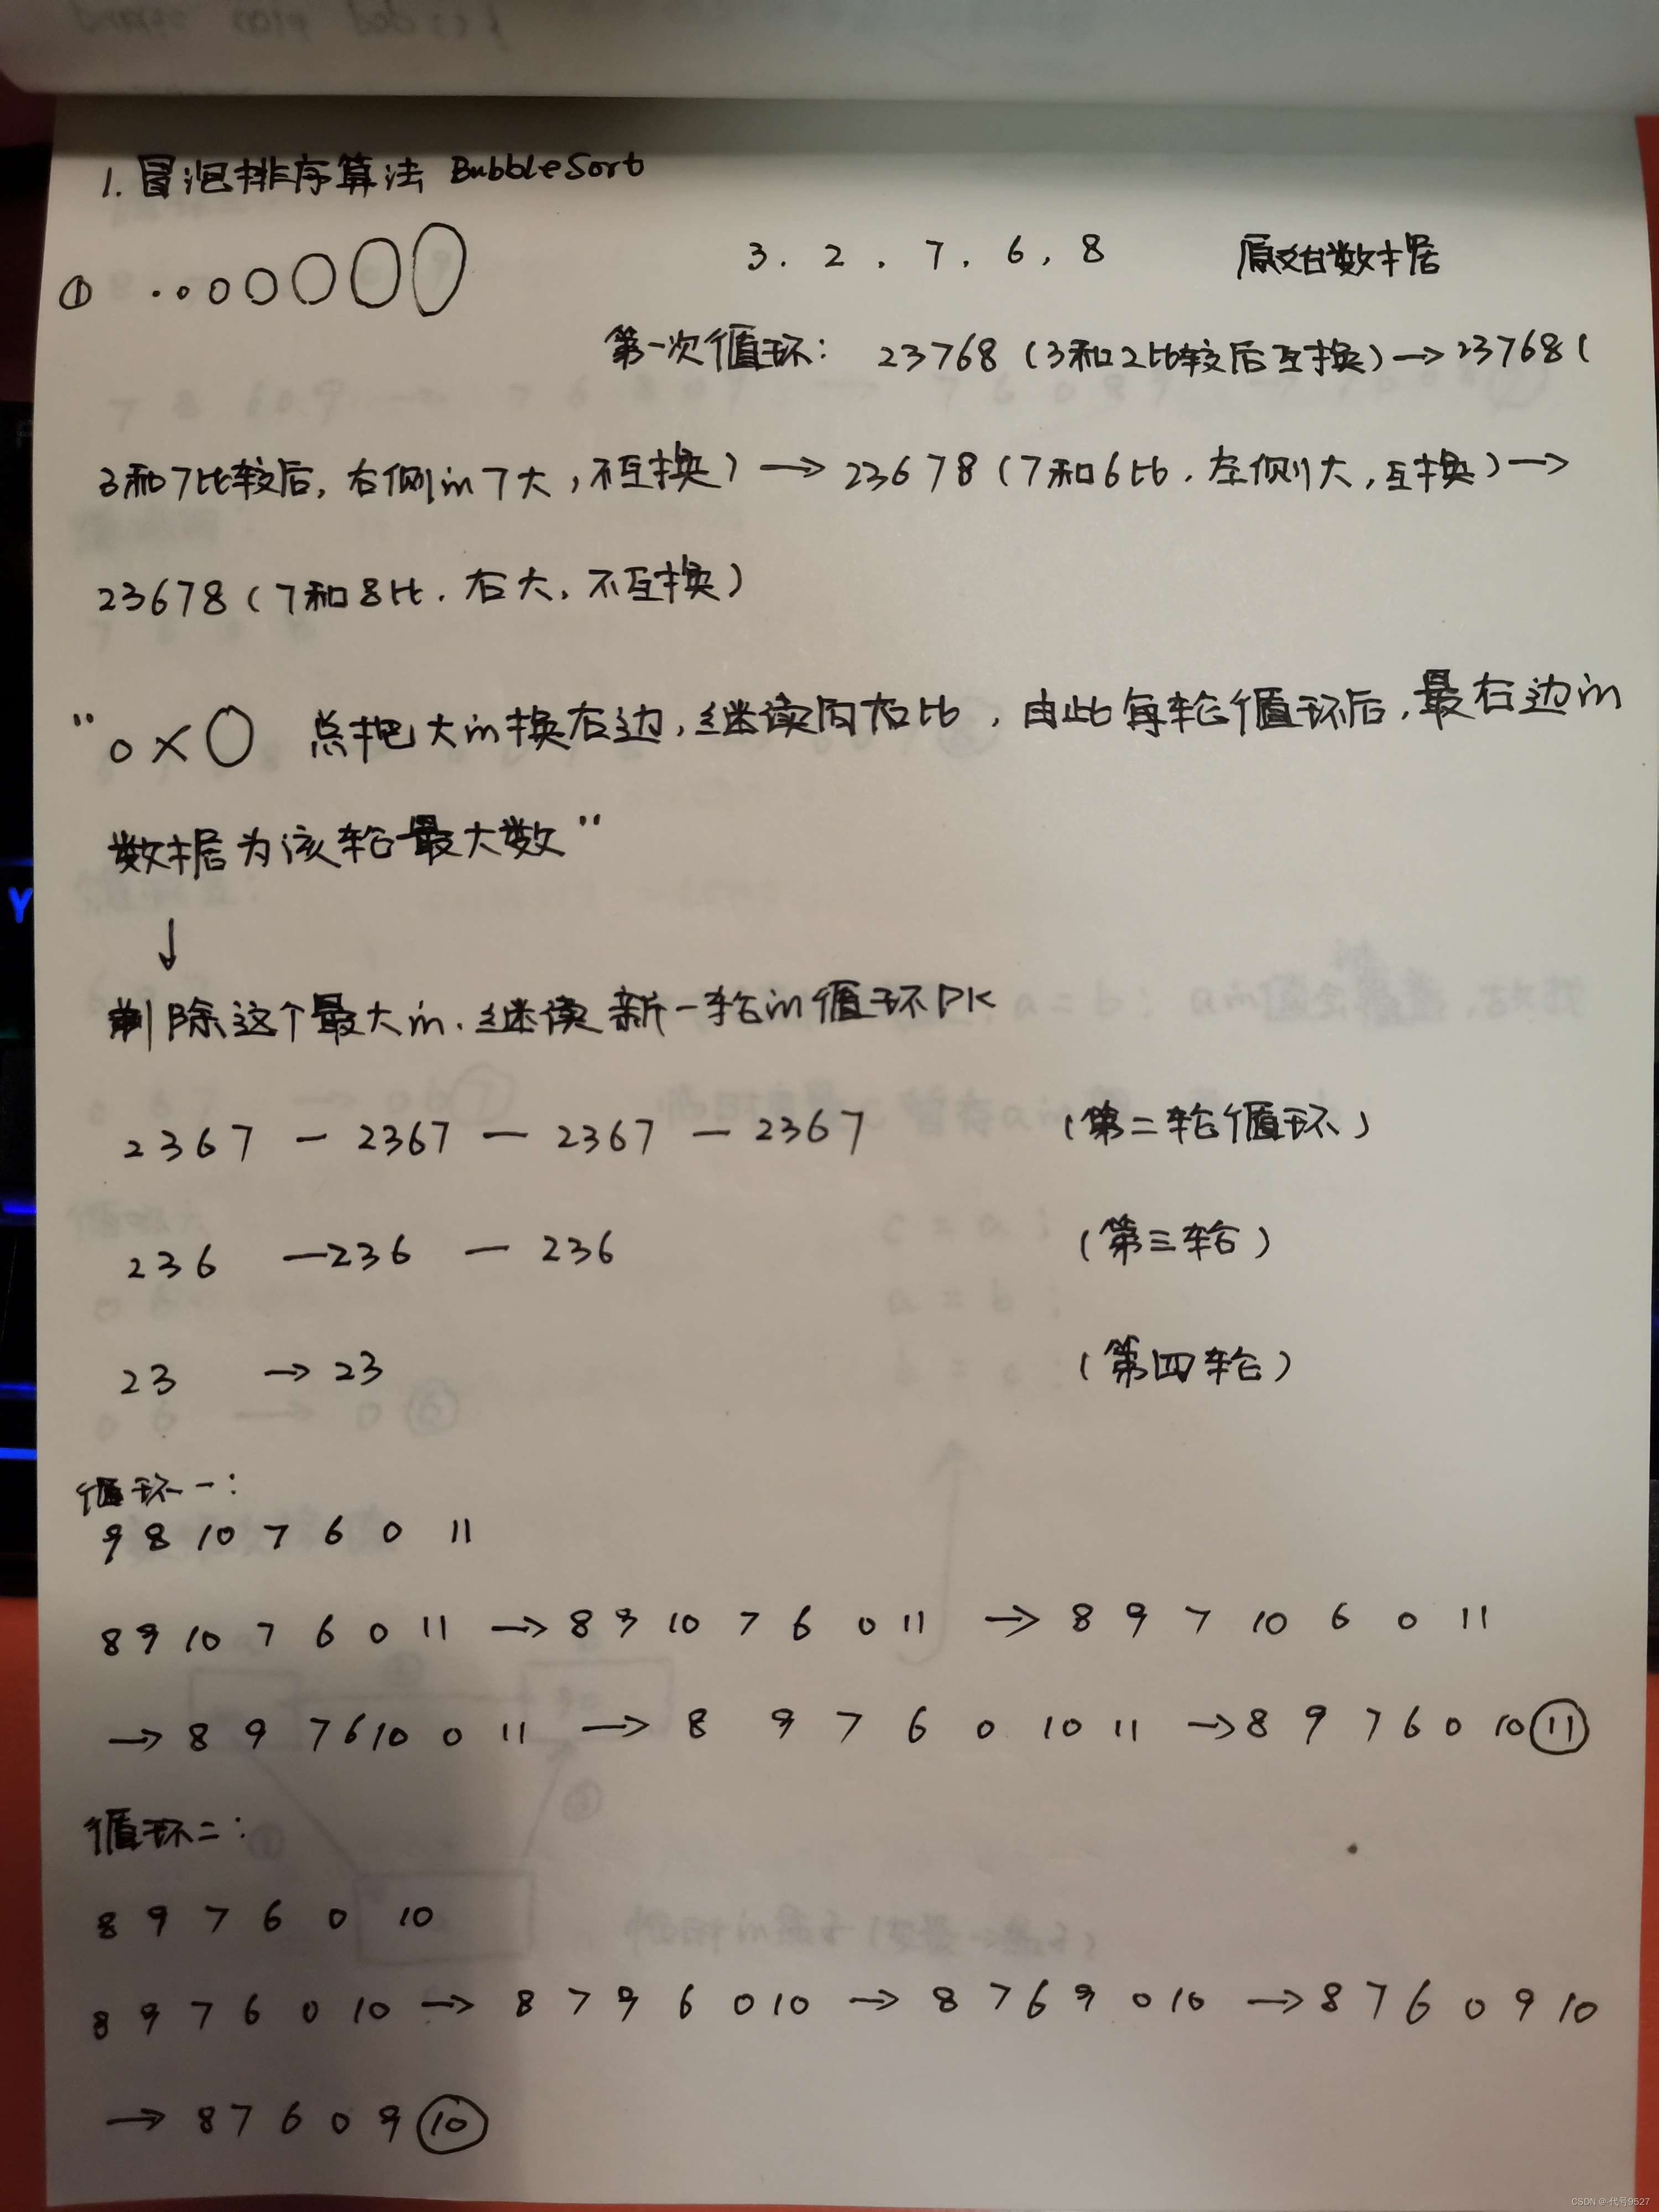 1. 冒泡排序算法 BubbleSort
①
3. 2 , 7, 6, 8 原始数据
第一次循环: 23768 (3和2比较后互换) → 23768 (
3和7比较后, 右侧in7大, 不互换) → 23678 (7和6比, 左侧大, 互换) →
23678 (7和8比, 右大, 不互换)
"o × O 总把大in换右边, 继续向右比, 由此每轮循环后, 最右边in
数据为该轮最大数"
↓
删除这个最大in, 继续新一轮in循环PK
2367 — 2367 — 2367 — 2367 (第二轮循环)
236 — 236 — 236 (第三轮)
23 → 23 (第四轮)
循环一:
9 8 10 7 6 0 11
8 9 10 7 6 0 11 → 8 9 10 7 6 0 11 → 8 9 7 10 6 0 11
→ 8 9 7 6 10 0 11 → 8 9 7 6 0 10 11 → 8 9 7 6 0 10 11
循环二:
8 9 7 6 0 10
8 9 7 6 0 10 → 8 7 9 6 0 10 → 8 7 6 9 0 10 → 8 7 6 0 9 10
→ 8 7 6 0 9 10
CSDN @代号9527